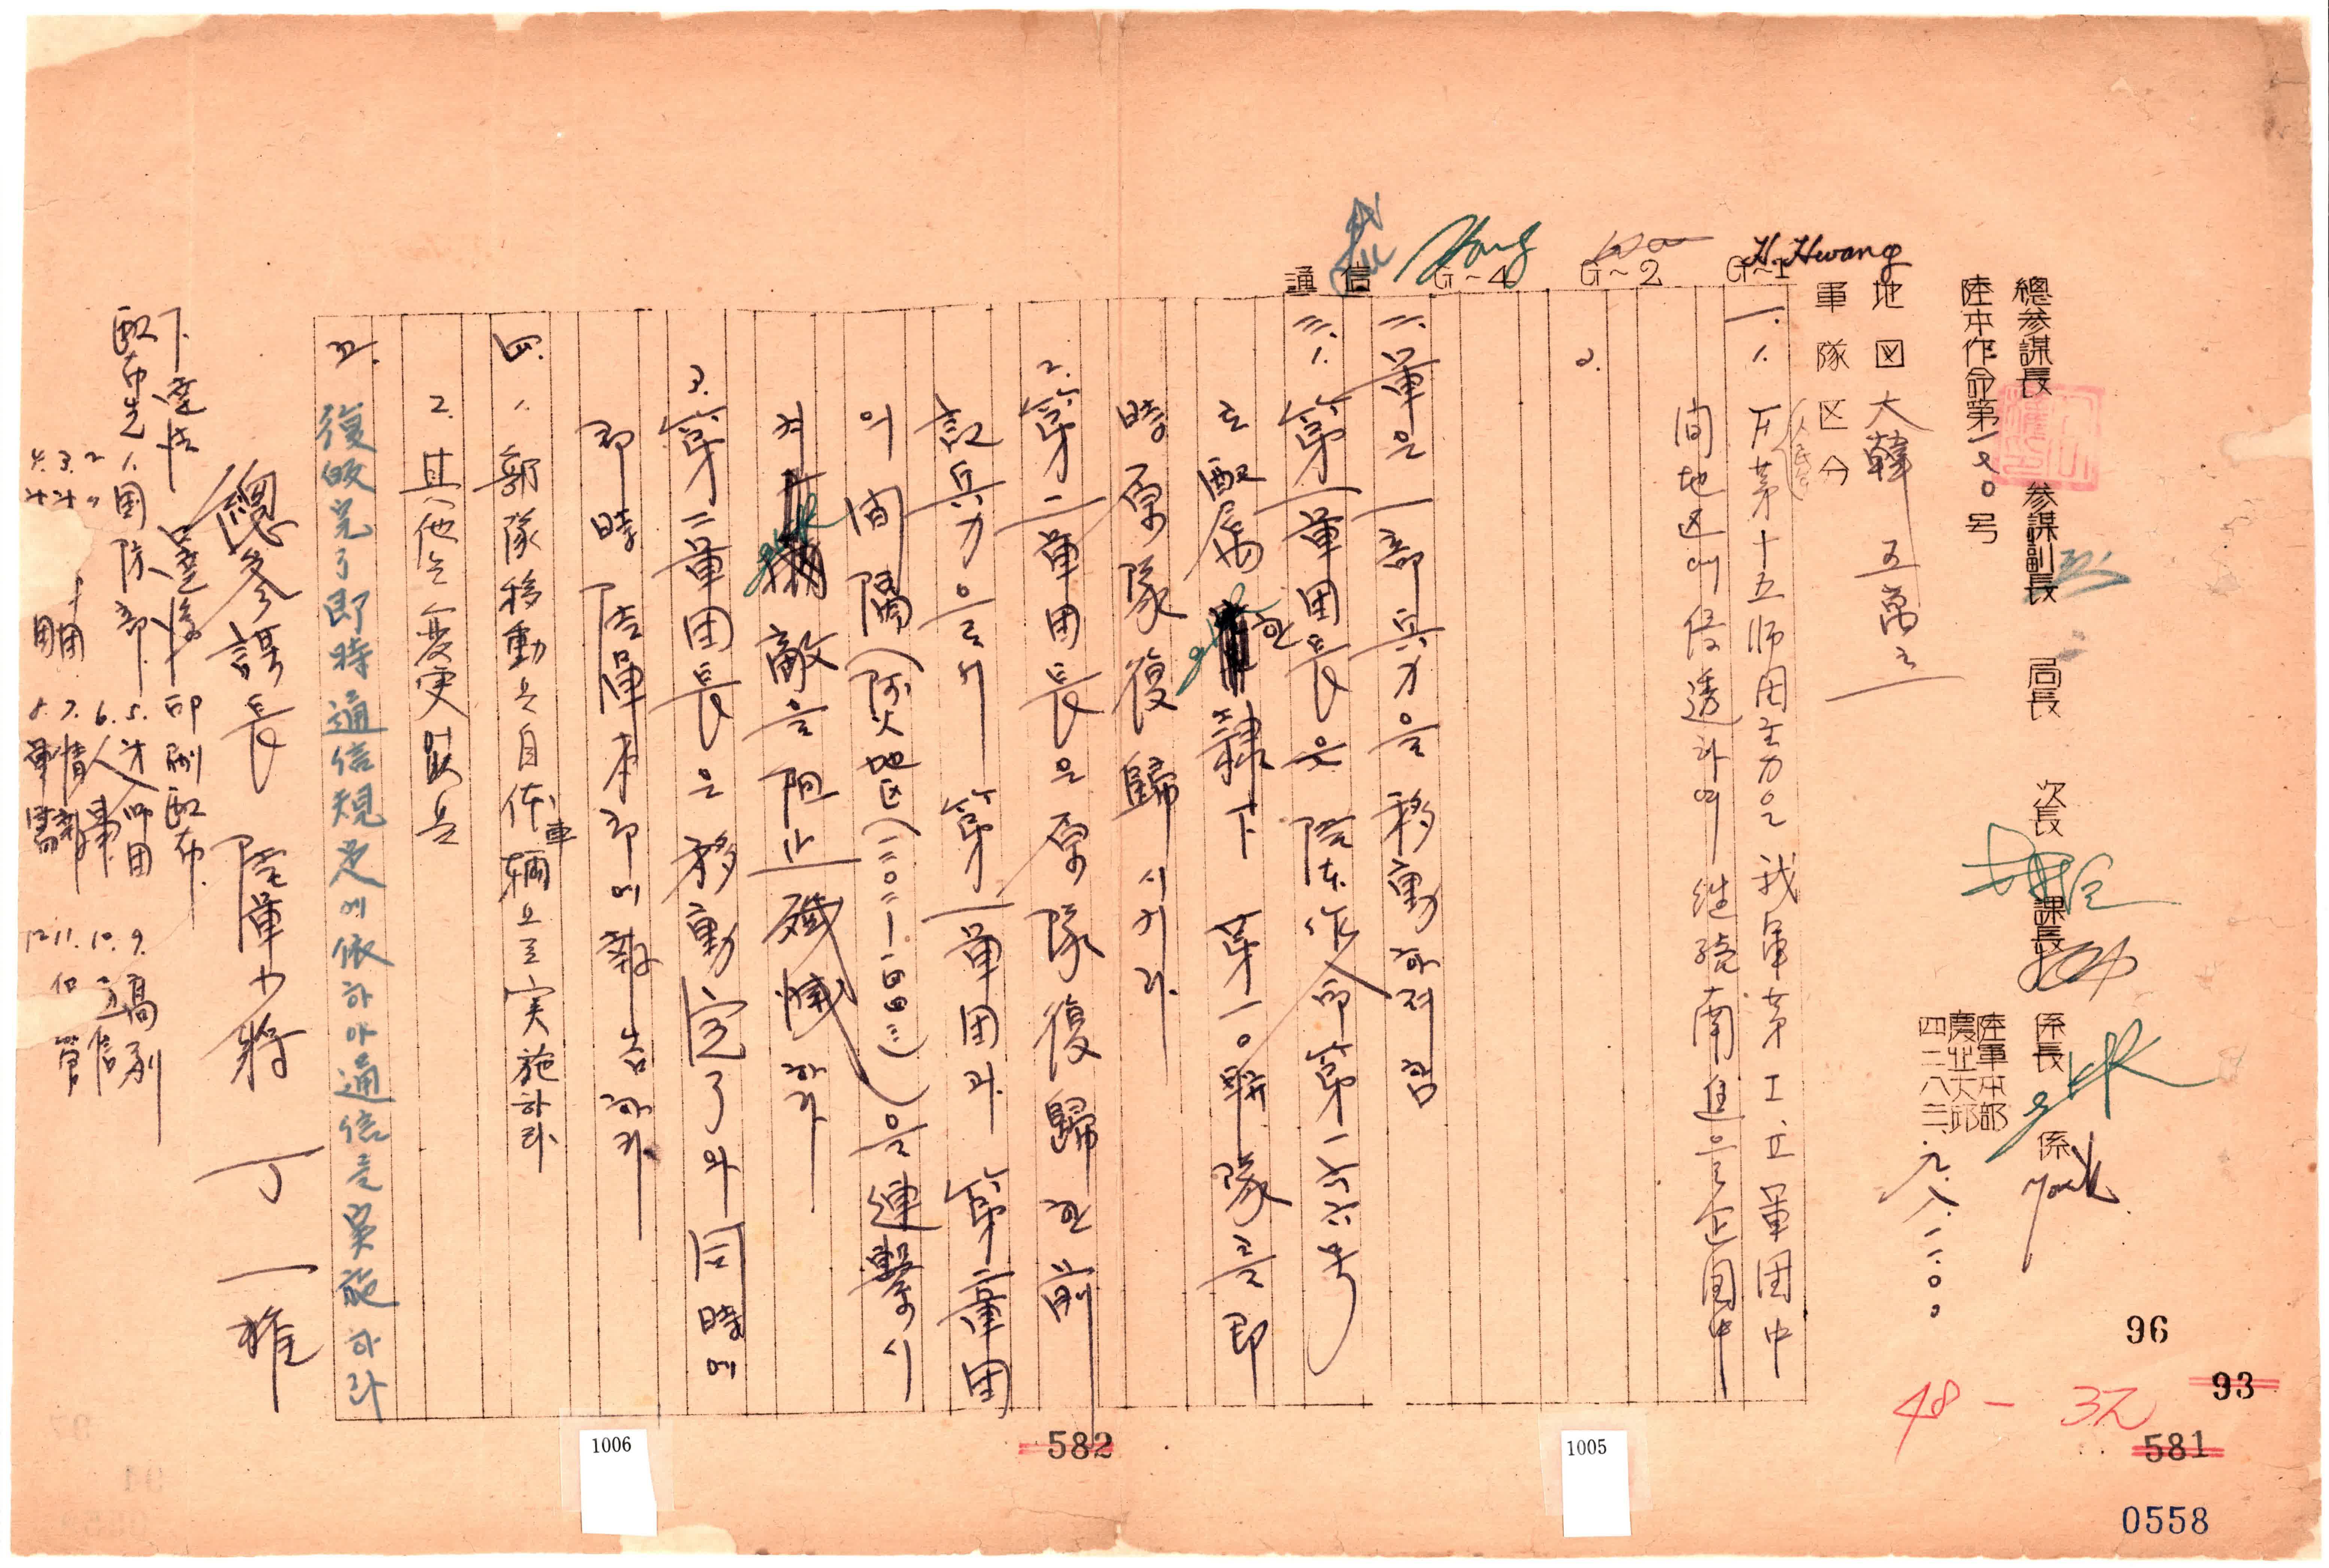 總参謀長 参謀副長 局長 次長 課長 係長 係
陸本作命第一七0号
陸軍本部
慶北大邱
四二八三、九、八、一二00
地図 大韓 五萬之一
軍隊区分
H. Hwang
G~1
G~2
G~4
通信
一. 1. 第十五師団主力은 我軍 第I、II軍団中
間地区에 侵透하여 継続 南進을 企図中
2.
二. 軍은 一部兵力을 移動하려 함
三. 1. 第一軍団長은 陸本作命第一六六号
로 配属한 隷下 第一0聯隊를 即
時 原隊復歸시키라.
2. 第二軍団長은 原隊復歸한 前
記兵力으로서 第一軍団과 第二軍団
의 間隔(阿火地区)(一二0二—一四四三)을 連繫시
켜 敵을 阻止殲滅하라
3. 第二軍団長은 移動完了와 同時에
即時 陸軍本部에 報告하라.
四. 1. 部隊移動은 自体車輛으로 実施하라.
2. 其他는 変更없음
五. 復帰完了即時通信規定에依하야通信을実施하라
總参謀長 陸軍少將 丁 一權
下達法 印刷配布.
配布先 1. 国防部. 5. 師団 9. 高副
2. 〃 6. 人事 10. 通信
3. 7. 情報 11.
4. 8. 軍需 12.
96
93
48 - 32
581
582
0558
1005
1006